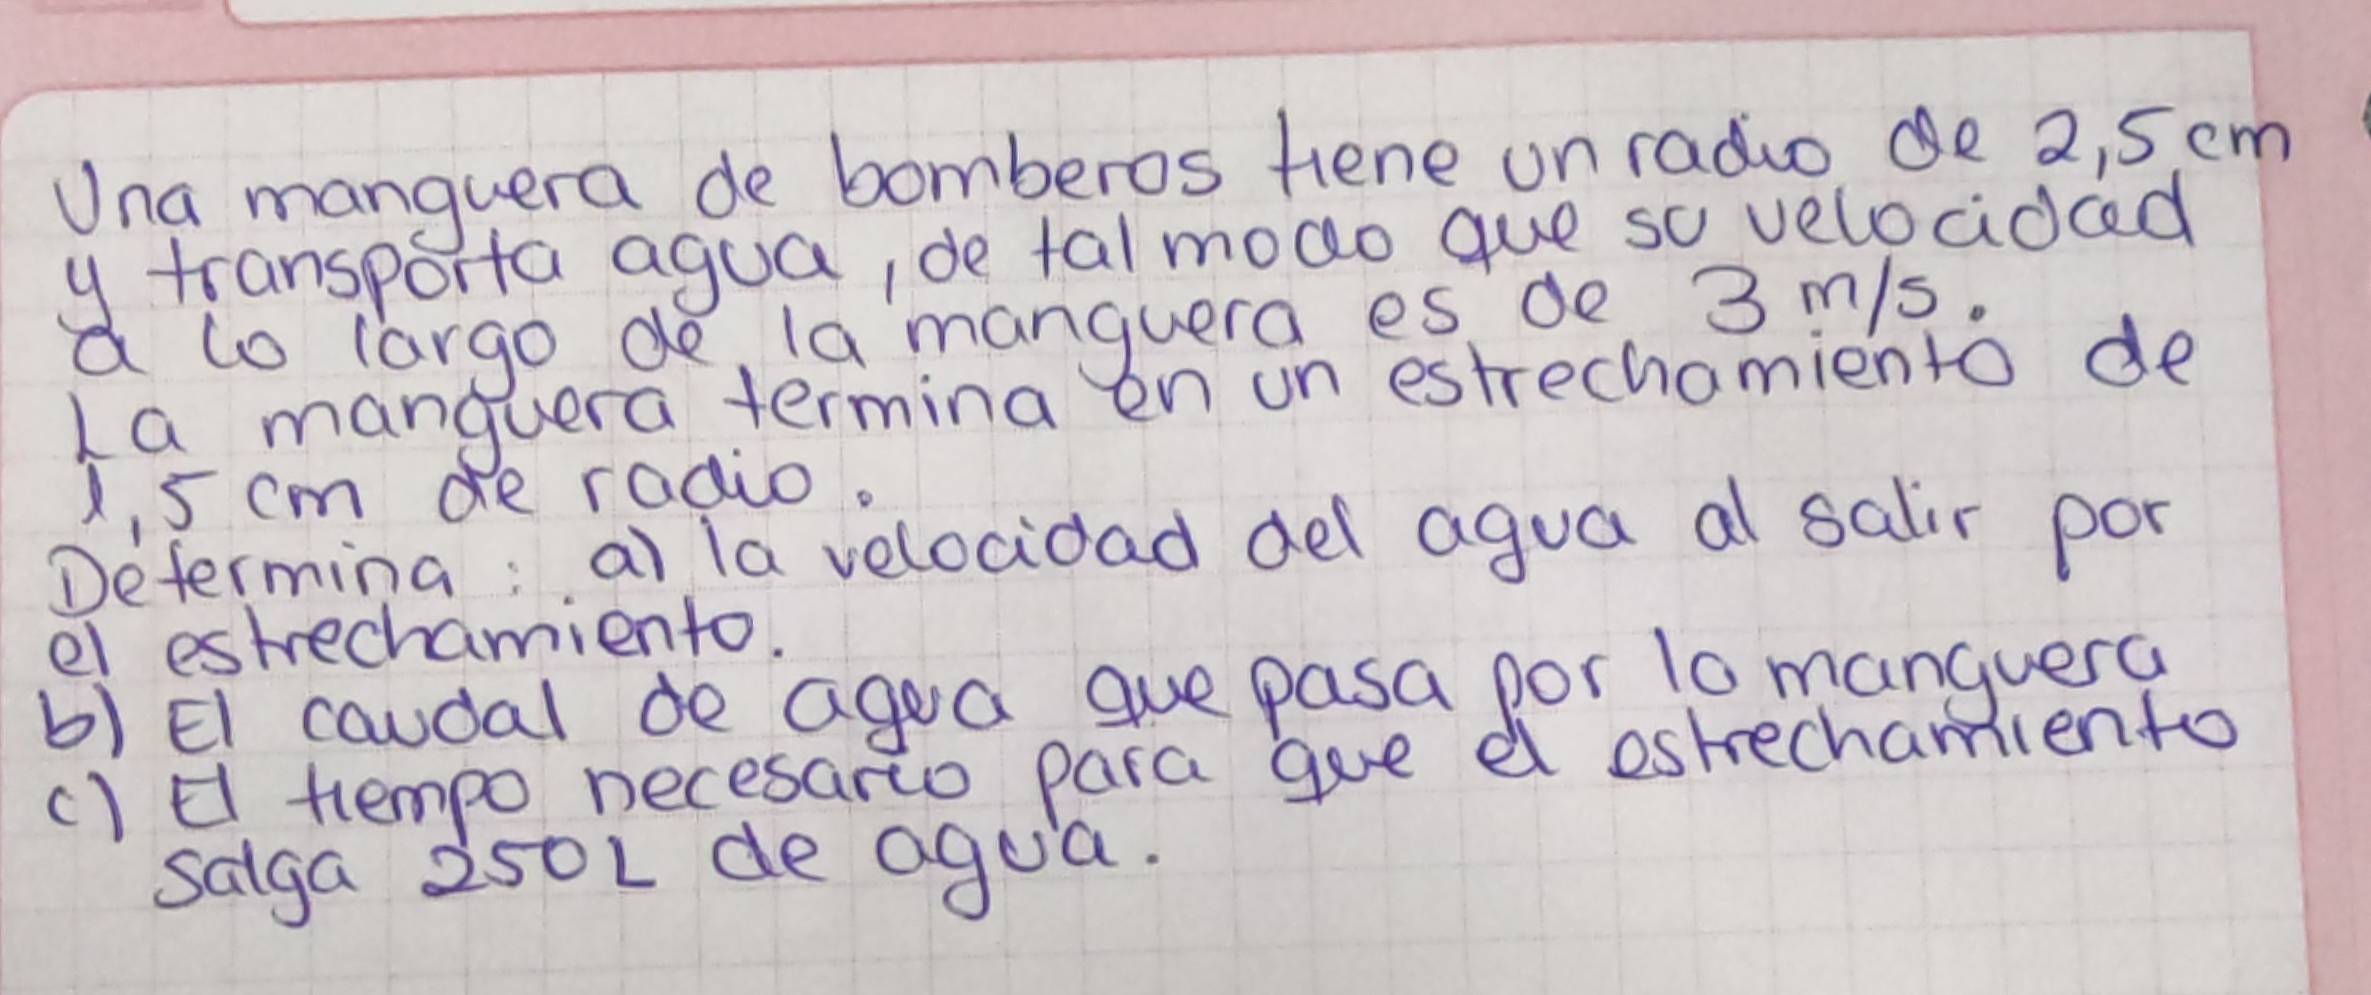 Una manguera de bomberos tiene un radio de 2,5 cm
y transporta agua, de tal modo que su velocidad
a lo largo de la manguera es de 3 m/s.
La manguera termina en un estrechamiento de
1,5 cm de radio.
Determina: a) la velocidad del agua al salir por
el estrechamiento.
b) El caudal de agua que pasa por la manguera
c) El tiempo necesario para que el estrechamiento
salga 250L de agua.